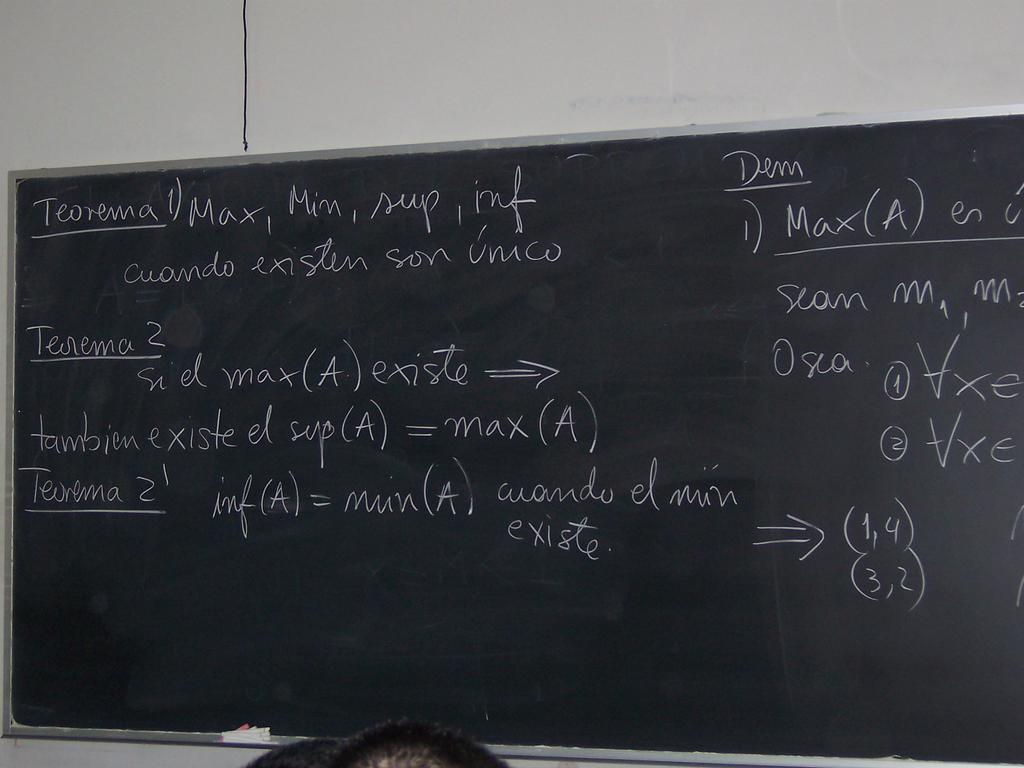 Teorema 1) Max, Min, sup, inf
cuando existen son único
Teorema 2
si el max(A) existe ⟹
tambien existe el sup(A) = max(A)
Teorema 2' inf(A) = min(A) cuando el min
existe.
Dem
1) Max(A) es
sean m₁, m₂
Osea. ① ∀x∈
② ∀x∈
⟹ (1,4)
(3,2)